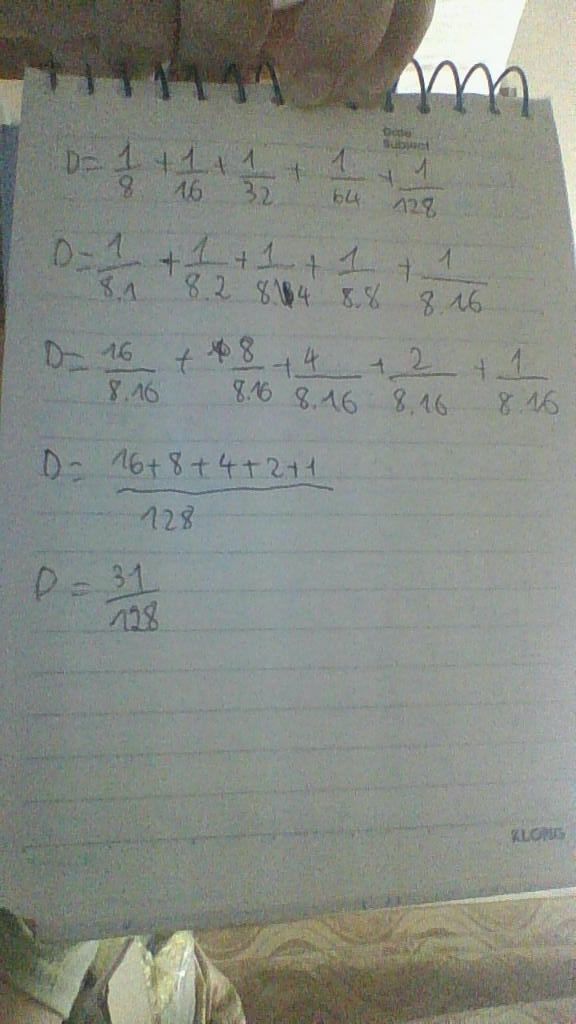 Date
Subject
D = 1/8 + 1/16 + 1/32 + 1/64 + 1/128
D = 1/8.1 + 1/8.2 + 1/8.4 + 1/8.8 + 1/8.16
D = 16/8.16 + 8/8.16 + 4/8.16 + 2/8.16 + 1/8.16
D = 16+8+4+2+1/128
D = 31/128
KLONG